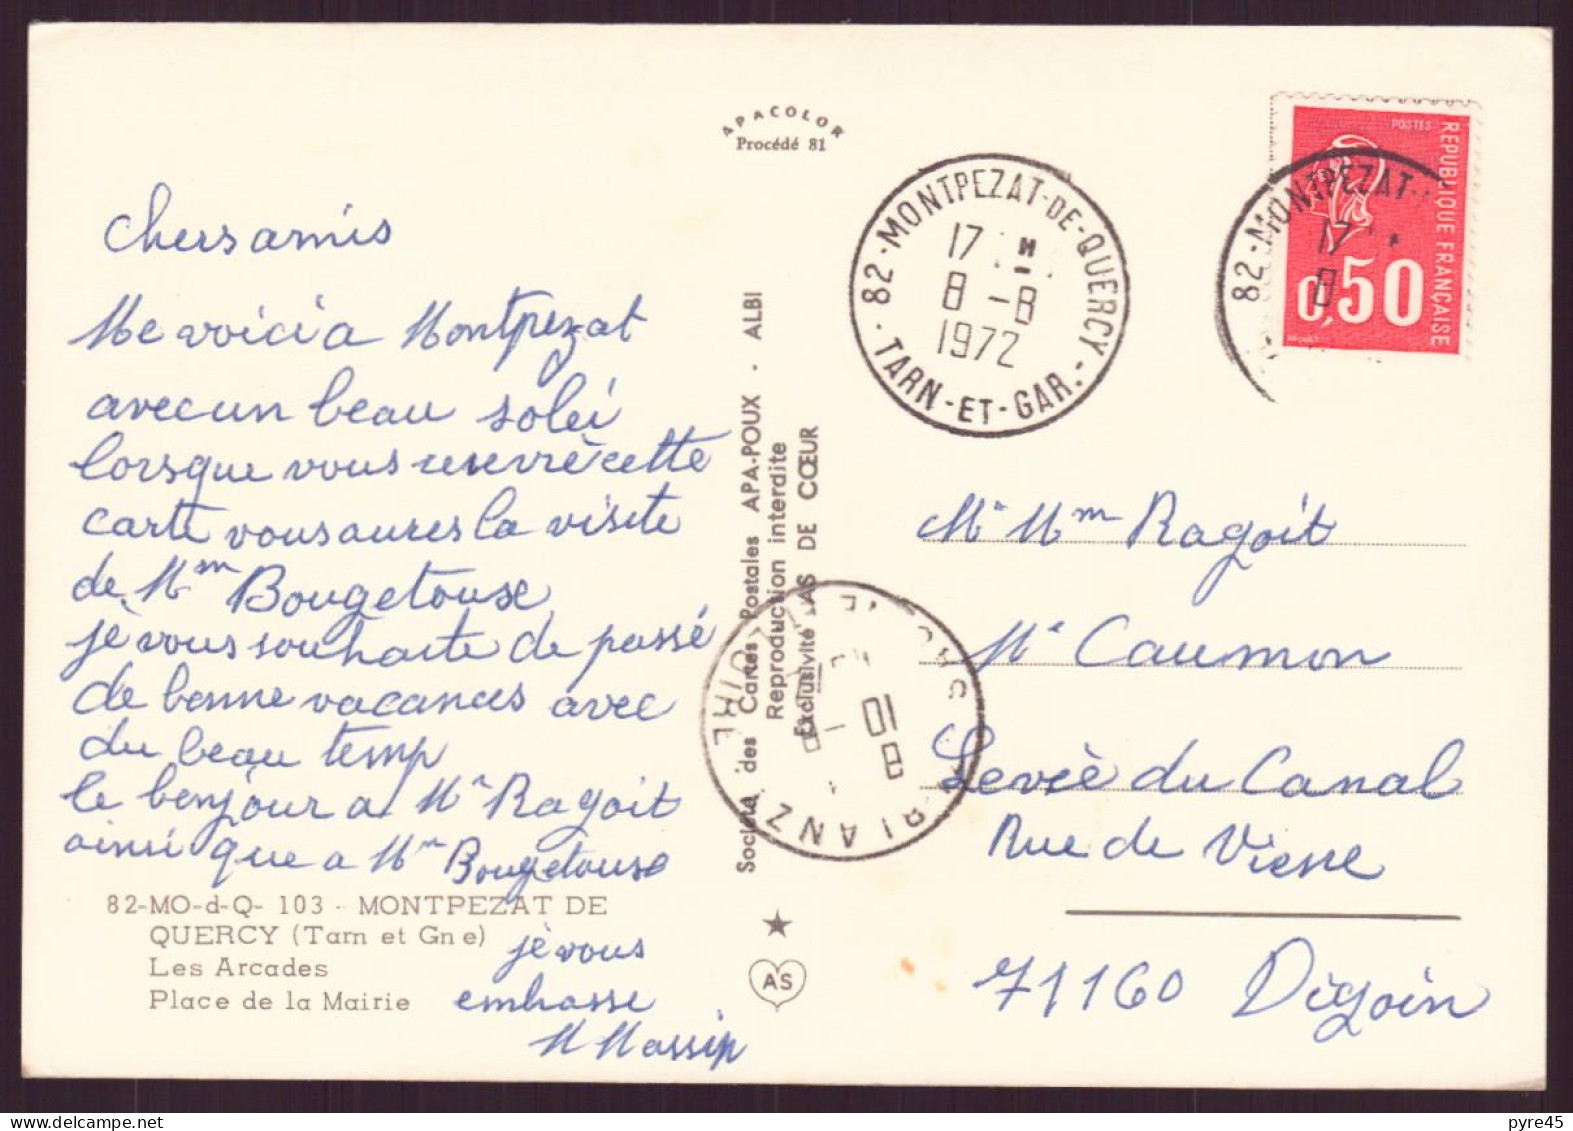 APACOLOR
Procédé 81
Chers amis
Me voici a Montpezat
avec un beau solei
lorsque vous reservrè cette
carte vous aures la visite
de Mm Bougetouse
jè vous souhaite de passé
de bonne vacances avec
du beau temp
le bonjour a Mr Ragoit
ainsi que a Mm Bougetouse
jè vous
embrasse
M Massip
82-MO-d-Q- 103 - MONTPEZAT DE
QUERCY (Tarn et Gne)
Les Arcades
Place de la Mairie
Société des Cartes Postales APA-POUX - ALBI
Reproduction interdite
Exclusivité AS DE CŒUR
AS
82 - MONTPEZAT-DE-QUERCY - TARN-ET-GAR. -
17 H
8 -8
1972
82 - MONTPEZAT
17
8
POSTES
REPUBLIQUE FRANÇAISE
0,50
LOIRE
Mr Mm Ragoit
Mr Caumon
Levèe du Canal
Rue de Vierre
71160 Digoin
pyre45